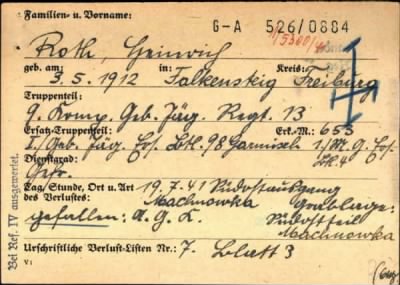 Familien- u. Vorname: G-A 526/0884
Roth, Heinrich
geb. am: in: Kreis:
3.5.1912 Falkensteig Freiburg
Truppenteil:
9. Komp. Geb. Jäg. Regt. 13
Ersatz-Truppenteil: Erk.-M.: 653
I./Geb. Jäg. Ers. Btl. 98 Garmisch 1/M.G. Ers.
Dienstgrad: Btl. 4
Gefr.
Tag, Stunde, Ort u. Art 19.7.41 Südostausgang
des Verlustes: Machnowka Grablage:
gefallen: A.G.K. Südostteil
Machnowka
Urschriftliche Verlust-Listen Nr.: 7. Blatt 3
V:
Bei Ref. IV ausgewertet.